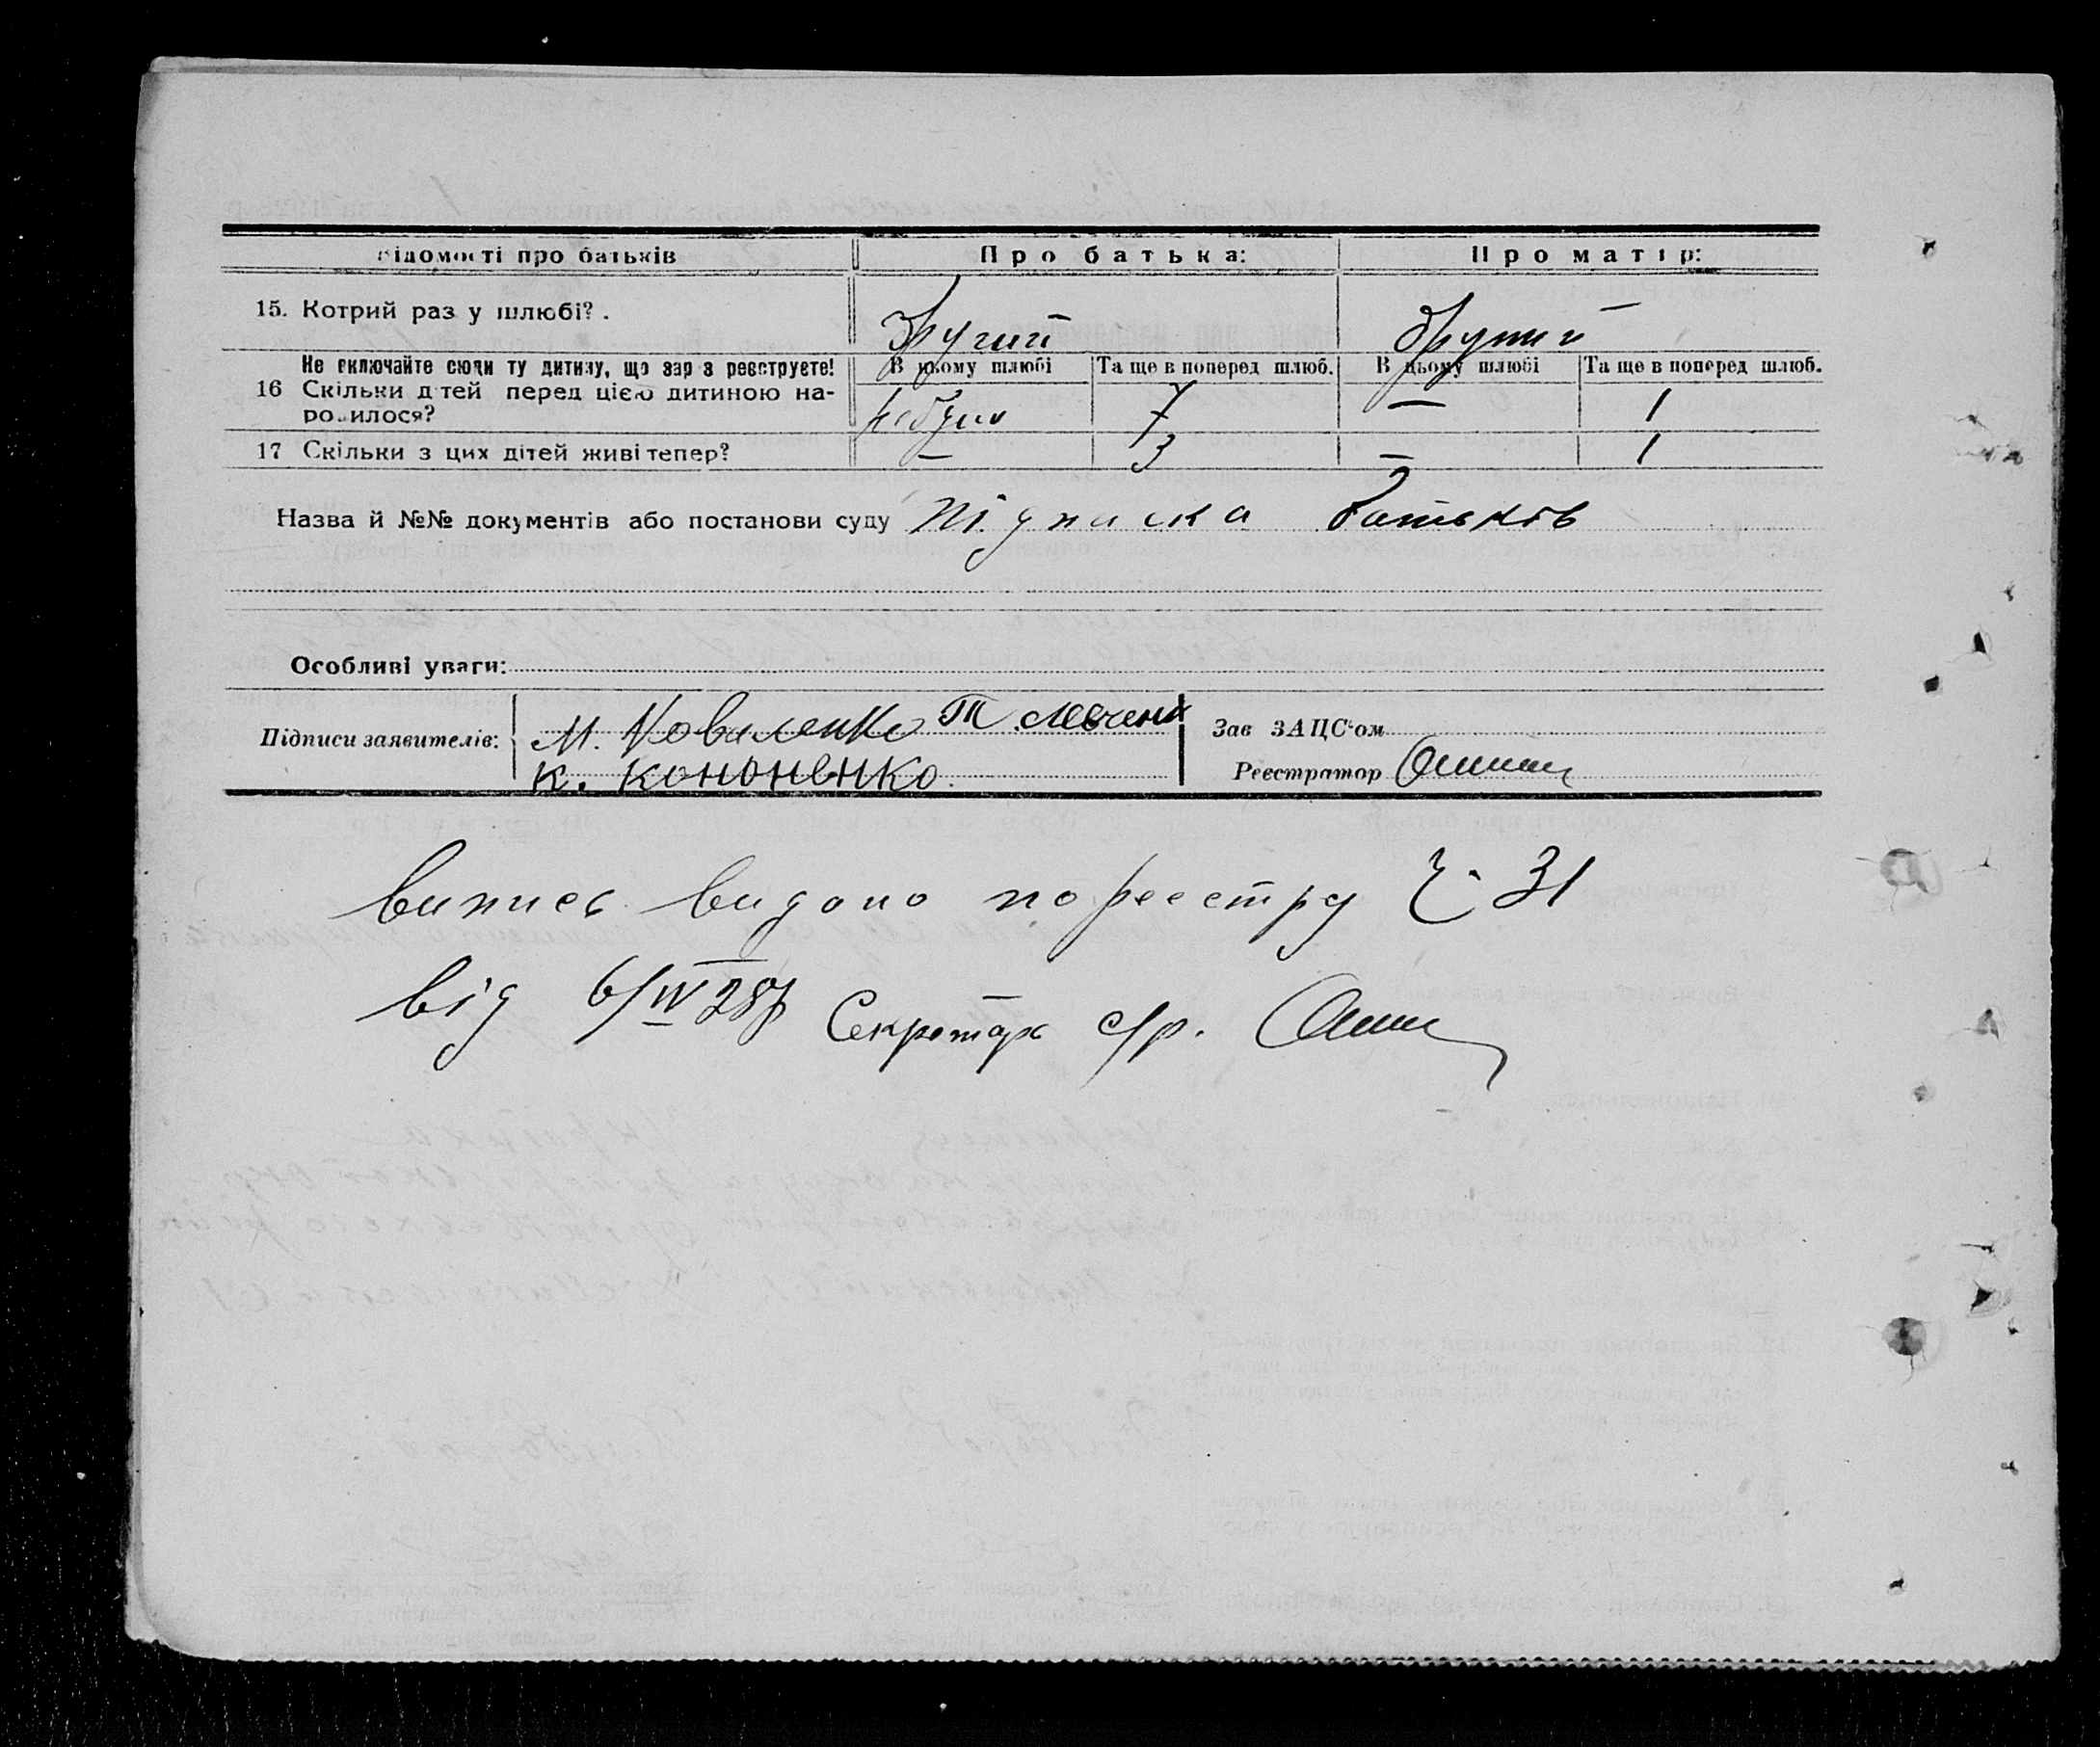 Відомості про батьків Про батька: Про матір:
15. Котрий раз у шлюбі? . Другий другий
Не включайте сюди ту дитину, що зараз реєструєте! В цьому шлюбі Та ще в поперед шлюб. В цьому шлюбі Та ще в поперед шлюб.
16 Скільки дітей перед цією дитиною на- 7 — 1
родилося?
17 Скільки з цих дітей живі тепер? — 3 — 1
Назва й №№ документів або постанови суду підписка батьків
Особливі уваги:
Підписи заявителів: М. Коваленко Т. Левченк Зав ЗАЦС'ом
К. Кононенко. Реєстратор
Випись видано по реестру Ч. 31
від 6/IV 28р Секретарь с/р.